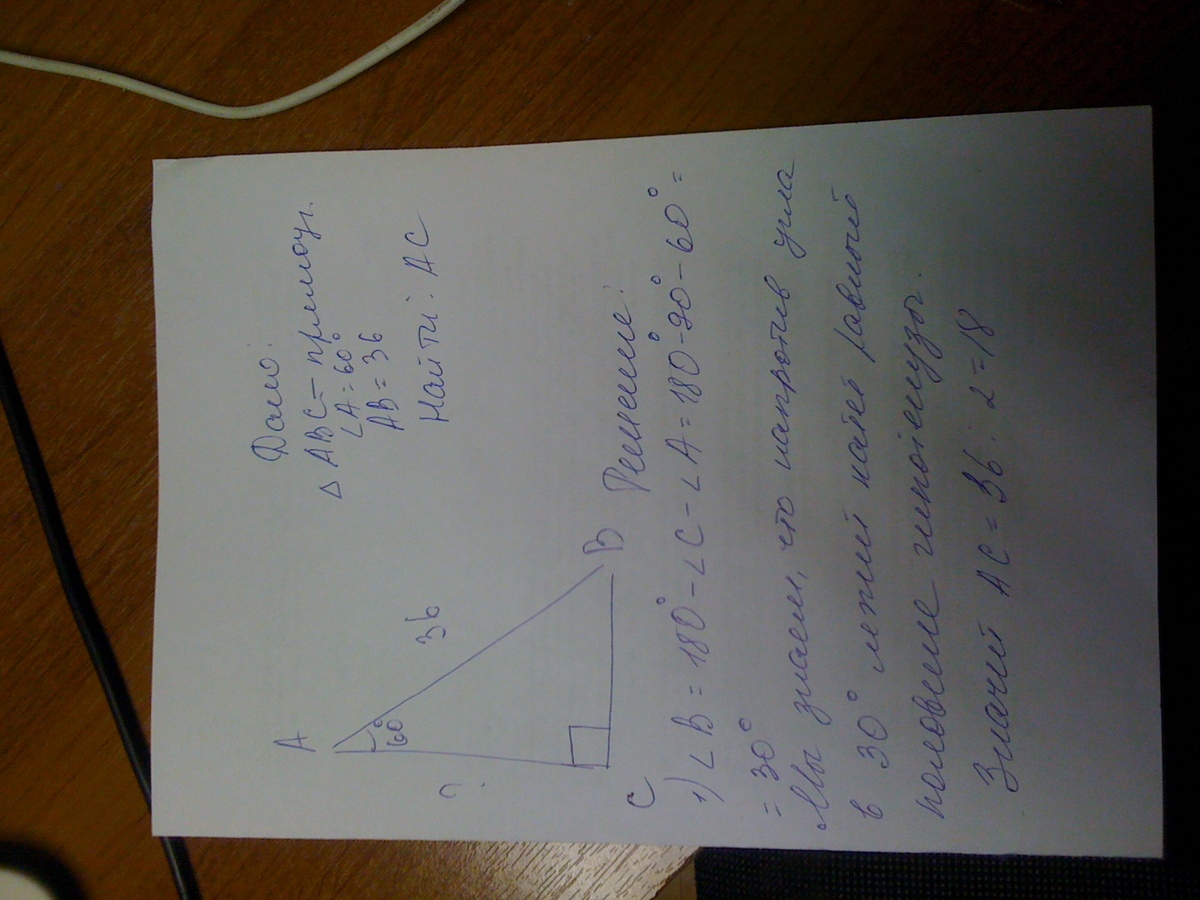 A
60°
36
?
C
B
Дано:
Δ ABC – прямоуг.
∠A = 60°
AB = 36
Найти: AC
Решение:
1) ∠B = 180° – ∠C – ∠A = 180° – 90° – 60° =
= 30°
Мы знаем, что напротив угла
в 30° лежит катет равный
половине гипотенузы.
Значит AC = 36 : 2 = 18